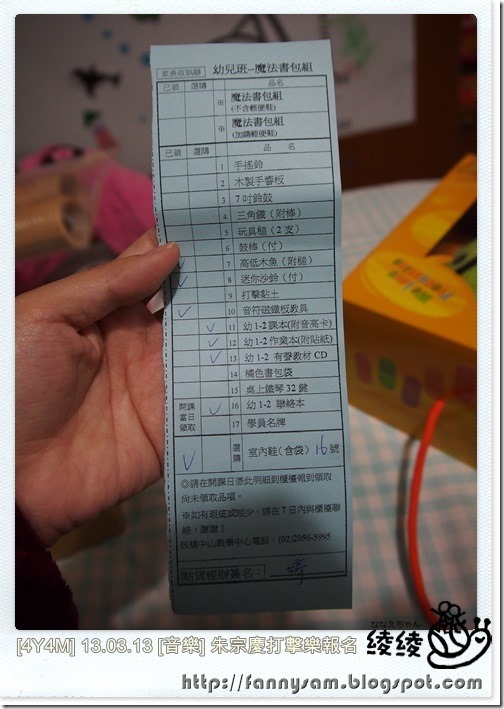 家長收執聯 幼兒班--魔法書包組
已領 選購 品名
※ 魔法書包組
(不含輕便鞋)
※ 魔法書包組
(加購輕便鞋)
已領 選購 品 名
1 手搖鈴
2 木製手響板
3 7吋鈴鼓
4 三角鐵(附棒)
5 玩具槌(2支)
6 鼓棒(付)
✓ 7 高低木魚(附槌)
✓ 8 迷你沙鈴(付)
9 打擊黏土
✓ 10 音符磁鐵板教具
✓ 11 幼1-2課本(附音高卡)
✓ 12 幼1-2作業本(附貼紙)
✓ 13 幼1-2 有聲教材CD
14 橘色書包袋
15 桌上鐵琴32鍵
開課當日領取 ✓ 16 幼1-2 聯絡本
17 學員名牌
✓ 選購 室內鞋(含袋) 16 號
◎請在開課日憑此明細到櫃檯報到領取
尚未領取品項。
※如有瑕疵或短少,請在7日內與櫃檯聯
絡,謝謝!
板橋中山教學中心電話:(02)2956-5995
點貨經辦簽名:
[4Y4M] 13.03.13 [音樂] 朱宗慶打擊樂報名
ななえちゃん
綾綾
http://fannysam.blogspot.com